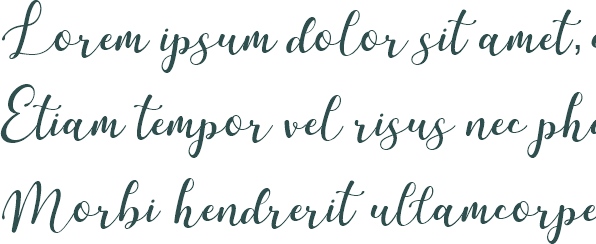 Lorem ipsum dolor sit amet,
Etiam tempor vel risus nec pha
Morbi hendrerit ullamcorpe